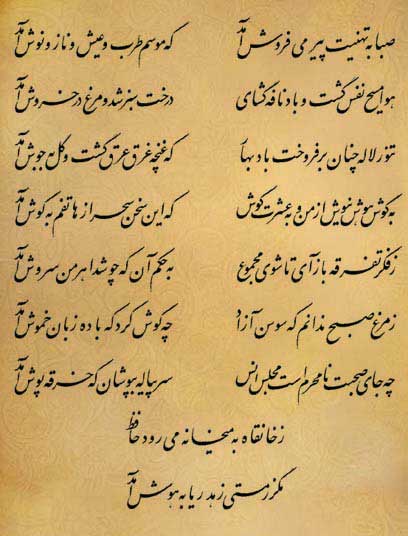 صبا به تهنیت پیر می فروش آمد که موسم طرب و عیش و ناز و نوش آمد
هوا مسیح نفس گشت و باد نافه گشای درخت سبز شد و مرغ در خروش آمد
تنور لاله چنان برفروخت باد بهار که غنچه غرق عرق گشت و گل به جوش آمد
به گوش هوش نیوش از من و به عشرت گوش که این سخن سحر از هاتفم به گوش آمد
ز فکر تفرقه باز آی تا شوی مجموع به حکم آن که چو شد اهرمن سروش آمد
ز مرغ صبح ندانم که سوسن آزاد چه گوش کرد که با ده زبان خموش آمد
چه جای صحبت نامحرم است مجلس انس سر پیاله بپوشان که خرقه پوش آمد
ز خانقاه به میخانه می رود حافظ
مگر ز مستی زهد ریا به هوش آمد